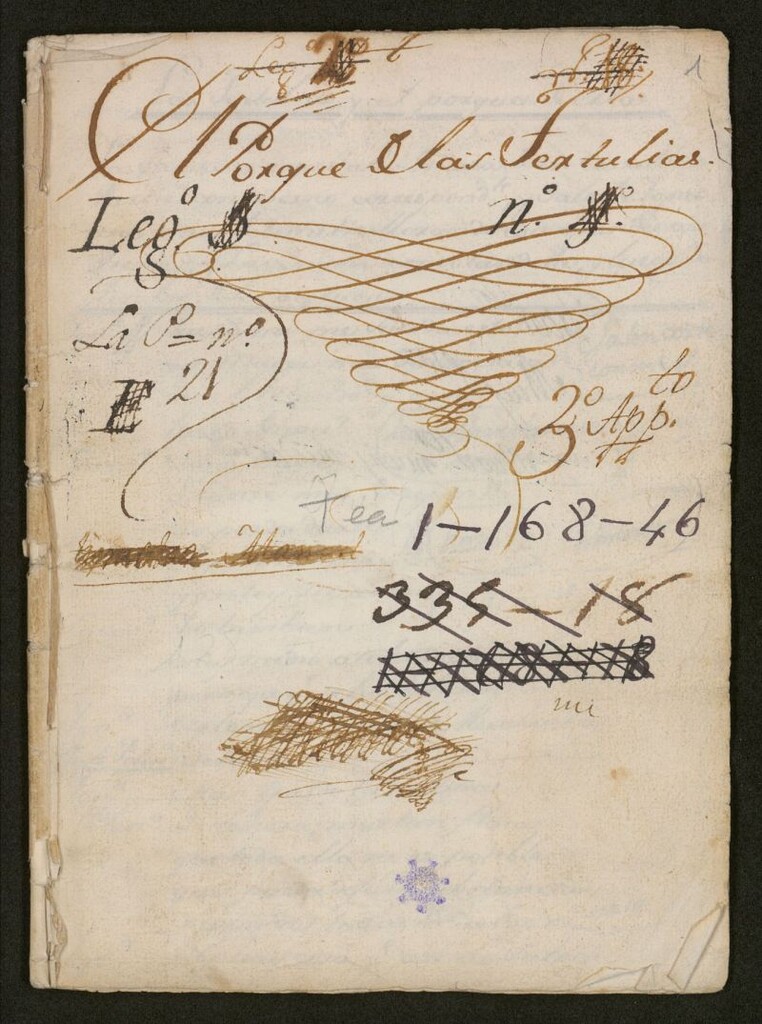 Leg.º
1
El Porque de las Tertulias.
Leg.º n.º
La P= n.º
21
2º App.to
Tea 1-168-46
335-18
1-68-8